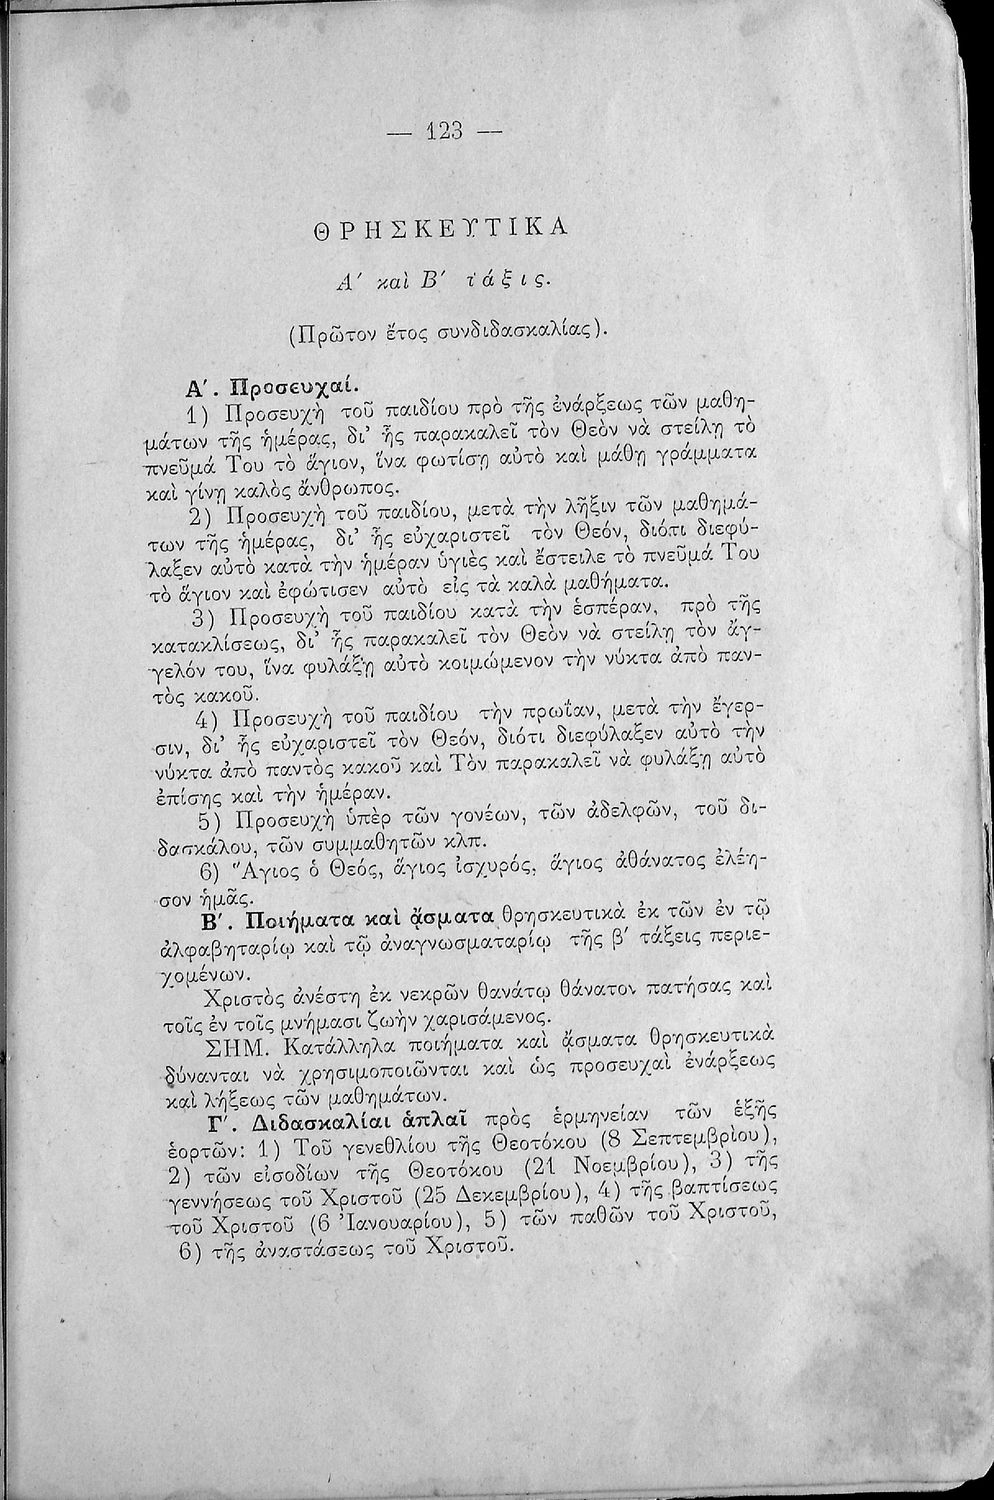 — 123 —
ΘΡΗΣΚΕΥΤΙΚΑ
Α΄ καὶ Β΄ τάξις.
(Πρῶτον ἔτος συνδιδασκαλίας).
Α΄. Προσευχαί.
1) Προσευχὴ τοῦ παιδίου πρὸ τῆς ἐνάρξεως τῶν μαθη-
μάτων τῆς ἡμέρας, δι’ ἧς παρακαλεῖ τὸν Θεὸν νὰ στείλῃ τὸ
πνεῦμά Του τὸ ἅγιον, ἵνα φωτίσῃ αὐτὸ καὶ μάθῃ γράμματα
καὶ γίνῃ καλὸς ἄνθρωπος.
2) Προσευχὴ τοῦ παιδίου, μετὰ τὴν λῆξιν τῶν μαθημά-
των τῆς ἡμέρας, δι’ ἧς εὐχαριστεῖ τὸν Θεόν, διότι διεφύ-
λαξεν αὐτὸ κατὰ τὴν ἡμέραν ὑγιὲς καὶ ἔστειλε τὸ πνεῦμά Του
τὸ ἅγιον καὶ ἐφώτισεν αὐτὸ εἰς τὰ καλὰ μαθήματα.
3) Προσευχὴ τοῦ παιδίου κατὰ τὴν ἑσπέραν, πρὸ τῆς
κατακλίσεως, δι’ ἧς παρακαλεῖ τὸν Θεὸν νὰ στείλῃ τὸν ἄγ-
γελόν του, ἵνα φυλάξῃ αὐτὸ κοιμώμενον τὴν νύκτα ἀπὸ παν-
τὸς κακοῦ.
4) Προσευχὴ τοῦ παιδίου τὴν πρωΐαν, μετὰ τὴν ἔγερ-
σιν, δι’ ἧς εὐχαριστεῖ τὸν Θεόν, διότι διεφύλαξεν αὐτὸ τὴν
νύκτα ἀπὸ παντὸς κακοῦ καὶ Τὸν παρακαλεῖ νὰ φυλάξῃ αὐτὸ
ἐπίσης καὶ τὴν ἡμέραν.
5) Προσευχὴ ὑπὲρ τῶν γονέων, τῶν ἀδελφῶν, τοῦ δι-
δασκάλου, τῶν συμμαθητῶν κλπ.
6) Ἅγιος ὁ Θεός, ἅγιος ἰσχυρός, ἅγιος ἀθάνατος ἐλέη-
σον ἡμᾶς.
Β΄. Ποιήματα καὶ ᾄσματα θρησκευτικὰ ἐκ τῶν ἐν τῷ
ἀλφαβηταρίῳ καὶ τῷ ἀναγνωσματαρίῳ τῆς β΄ τάξεις περιε-
χομένων.
Χριστὸς ἀνέστη ἐκ νεκρῶν θανάτῳ θάνατον πατήσας καὶ
τοῖς ἐν τοῖς μνήμασι ζωὴν χαρισάμενος.
ΣΗΜ. Κατάλληλα ποιήματα καὶ ᾄσματα θρησκευτικὰ
δύνανται νὰ χρησιμοποιῶνται καὶ ὡς προσευχαὶ ἐνάρξεως
καὶ λήξεως τῶν μαθημάτων.
Γ΄. Διδασκαλίαι ἁπλαῖ πρὸς ἑρμηνείαν τῶν ἑξῆς
ἑορτῶν: 1) Τοῦ γενεθλίου τῆς Θεοτόκου (8 Σεπτεμβρίου),
2) τῶν εἰσοδίων τῆς Θεοτόκου (21 Νοεμβρίου), 3) τῆς
γεννήσεως τοῦ Χριστοῦ (25 Δεκεμβρίου), 4) τῆς βαπτίσεως
τοῦ Χριστοῦ (6 Ἰανουαρίου), 5) τῶν παθῶν τοῦ Χριστοῦ,
6) τῆς ἀναστάσεως τοῦ Χριστοῦ.